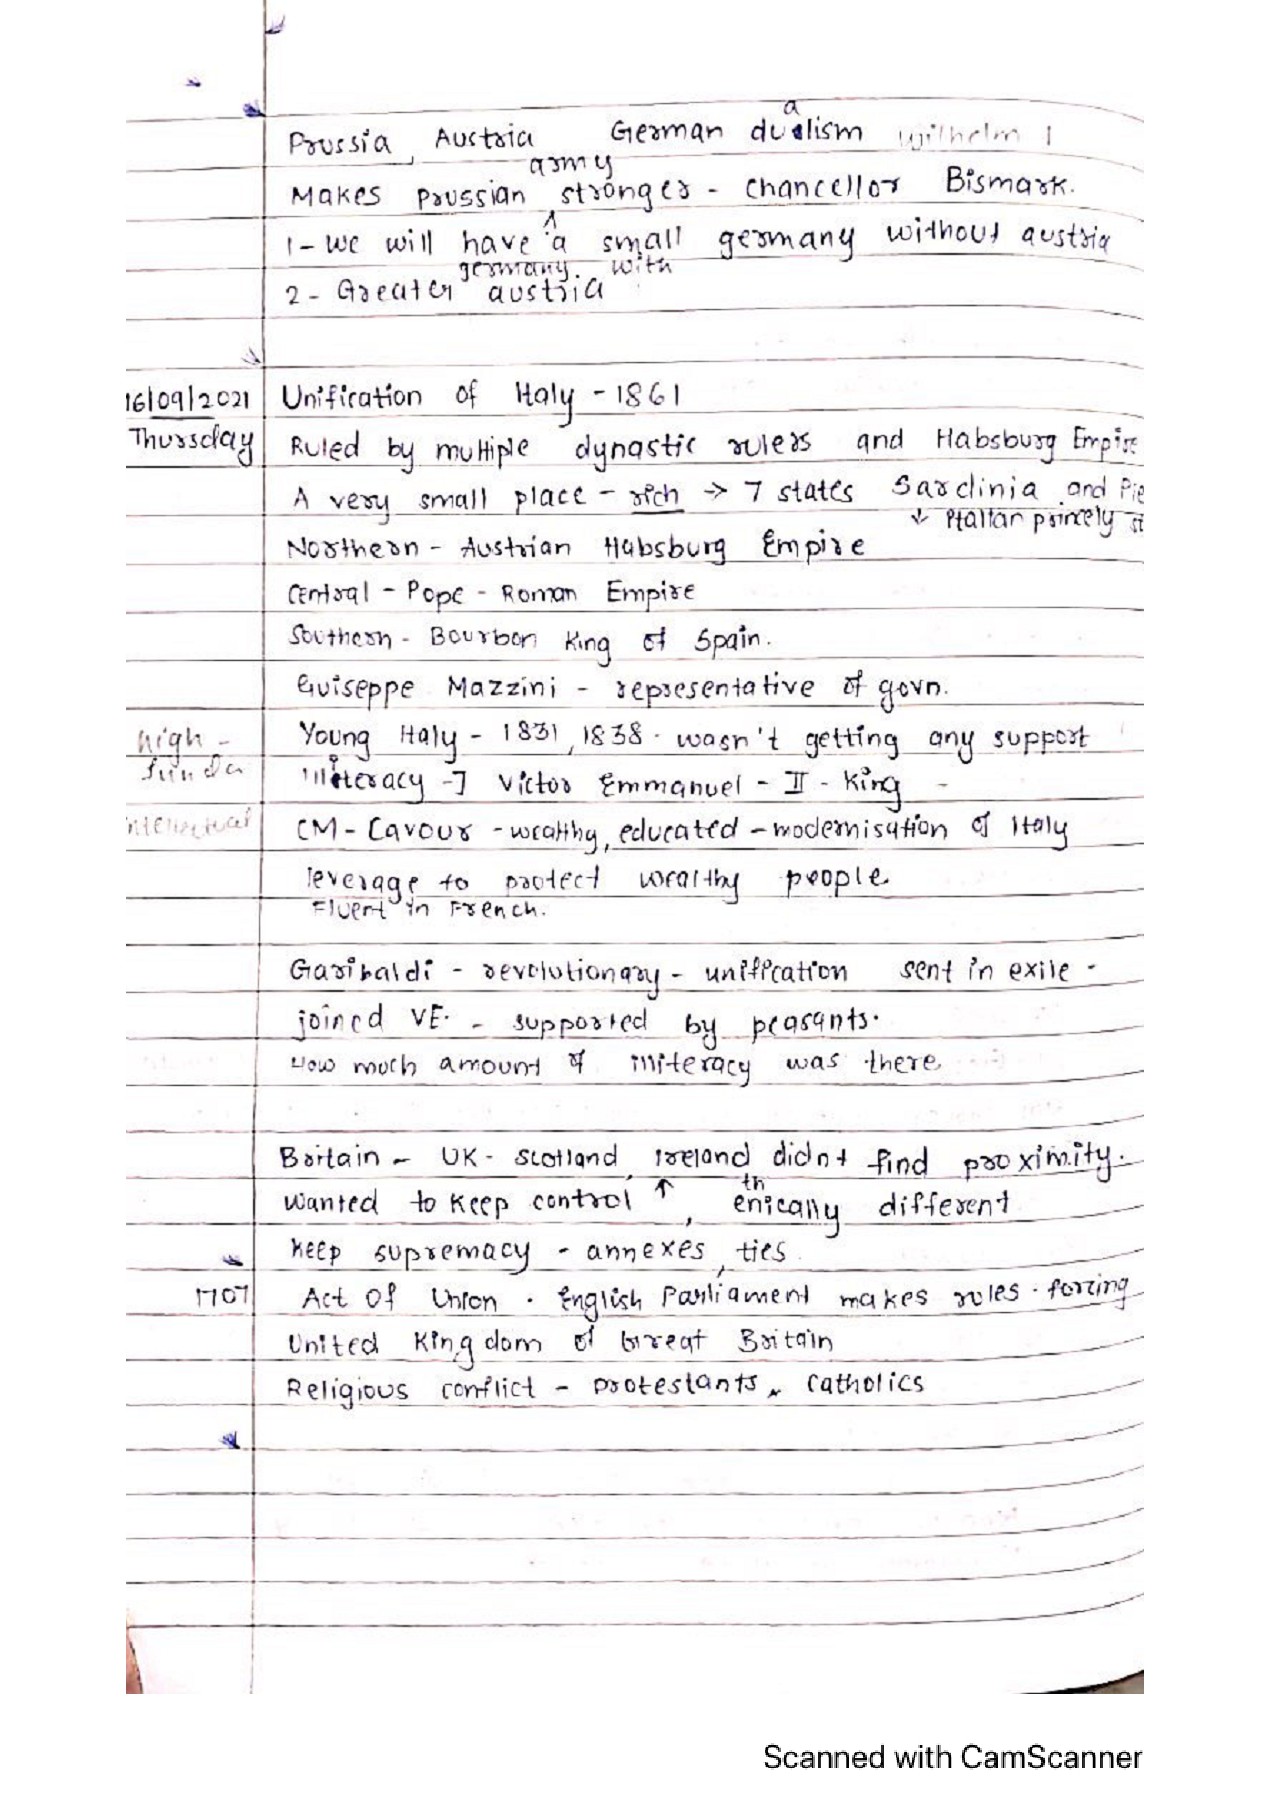 Prussia, Austria German dualism Wilhelm I
Makes Prussian army stronger - chancellor Bismark.
1 - we will have a small germany without austria
2 - Greater germany. with austria
16/09/2021 Unification of Italy - 1861
Thursday Ruled by multiple dynastic rulers and Habsburg Empire
A very small place - rich → 7 states Sardinia and Pie
↓ Italian princely st
Northern - Austrian Habsburg Empire
Central - Pope - Roman Empire
Southern - Bourbon King of Spain.
Guiseppe Mazzini - representative of govn.
high - Young Italy - 1831, 1838. wasn't getting any support
illiteracy -] Victor Emmanuel - II - King -
intellectual CM - Cavour - wealthy, educated - modernisation of Italy
leverage to protect wealthy people
Fluent in French.
Garibaldi - revolutionary - unification sent in exile -
joined VE. - supported by peasants.
How much amount of illiteracy was there
Britain - UK - Scotland, Ireland didnt find proximity.
Wanted to keep control ↑, ethnically different
keep supremacy - annexes, ties.
1707 Act Of Union. English Parliament makes rules. forcing
United Kingdom of Great Britain
Religious conflict - Protestants, Catholics
Scanned with CamScanner